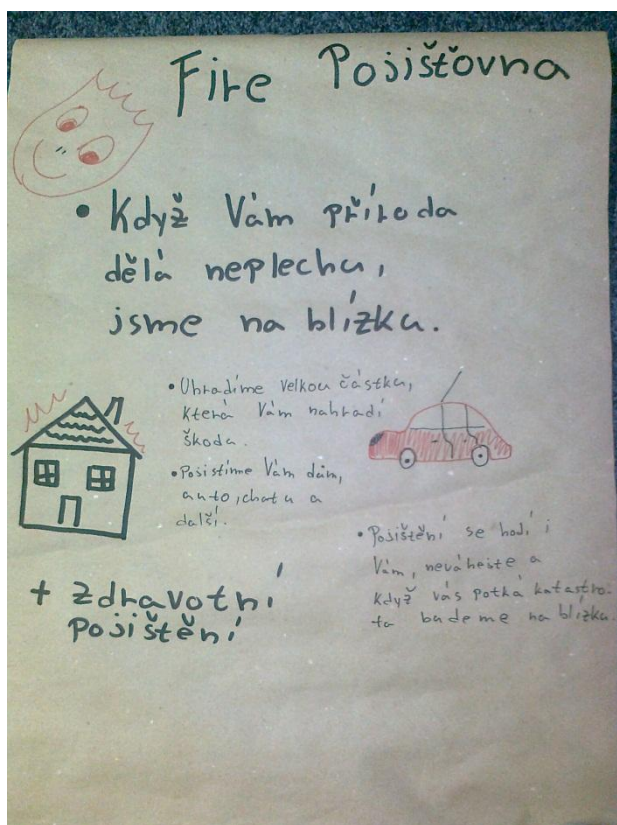 Fire Pojišťovna
• Když Vám příroda
dělá neplechu,
jsme na blízku.
• Uhradíme velkou částku,
která Vám nahradí
škodu.
• Pojistíme Vám dům,
auto, chatu a
další.
• Pojištění se hodí i
Vám, neváhejte a
Když vás potká katastro-
fa budeme na blízku.
+ Zdravotní
pojištění